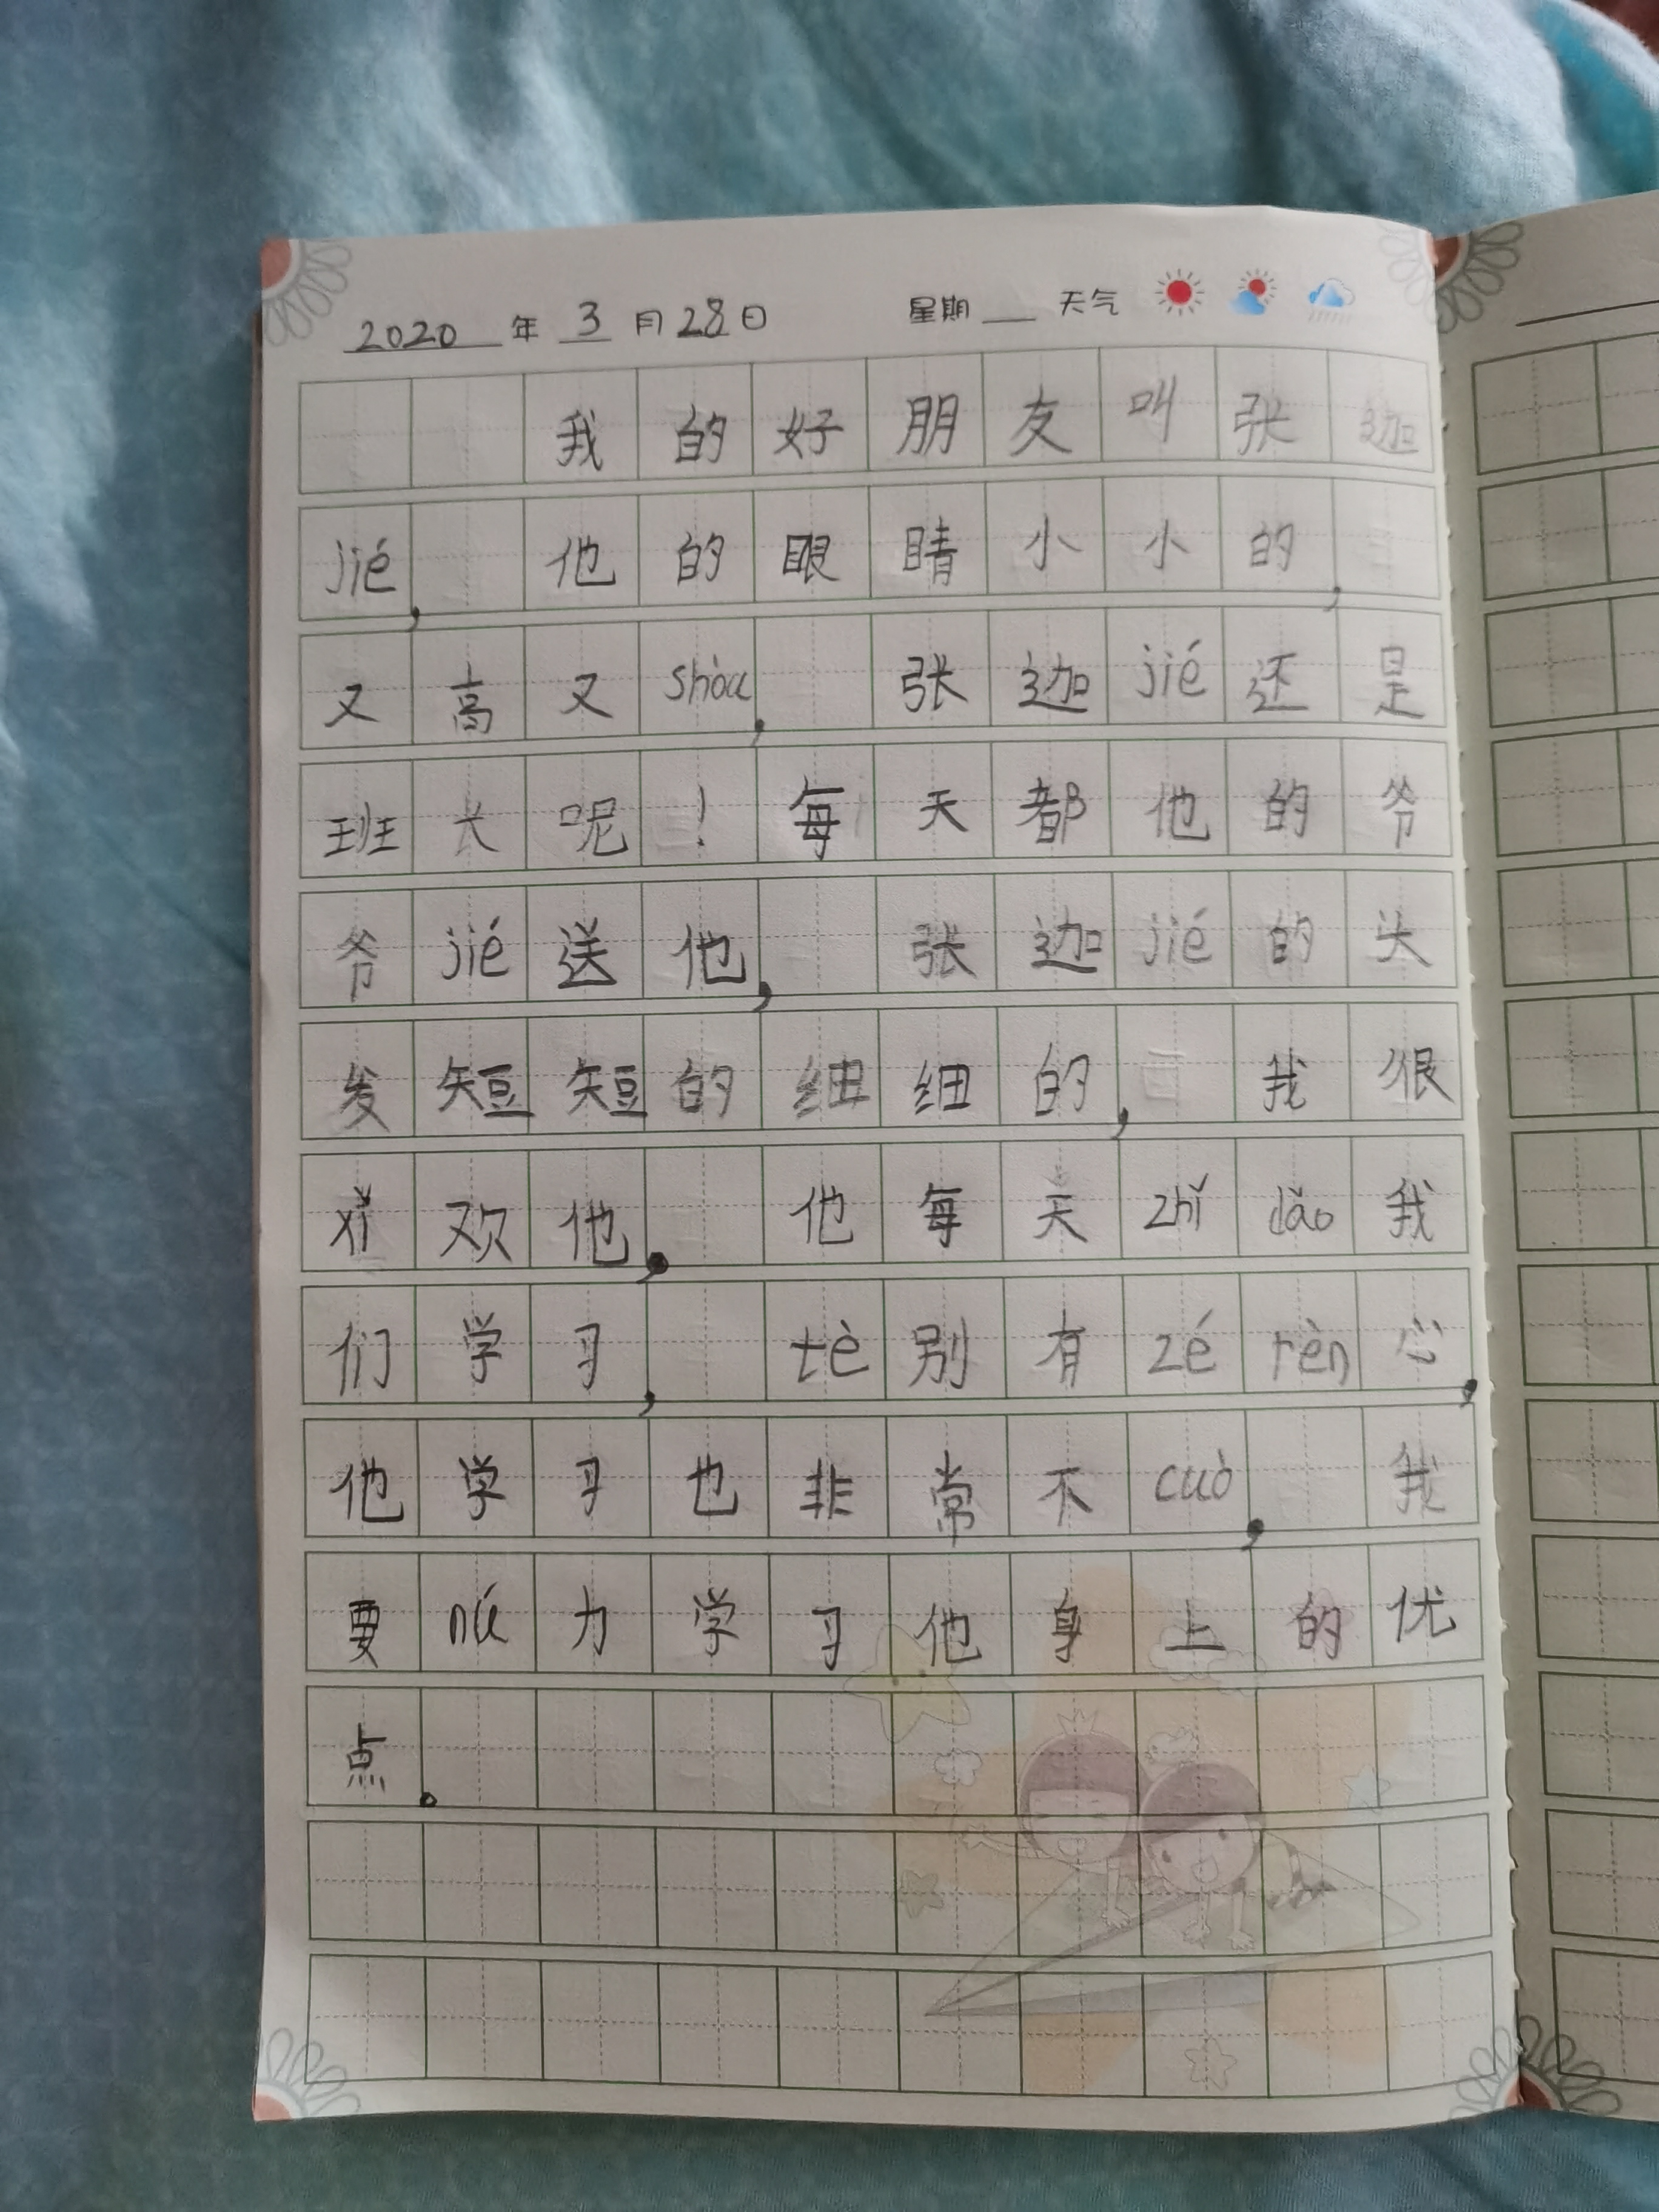 2020 年 3 月 28 日 星期 天气
我的好朋友叫张迦
jié,他的眼睛小小的,
又高又shòu,张迦jié还是
班长呢!每天都他的爷
爷jié送他,张迦jié的头
发短短的细细的,我很
xǐ欢他,他每天zhǐdǎo我
们学习,tè别有zérèn心,
他学习也非常不cuò,我
要nú力学习他身上的优
点。